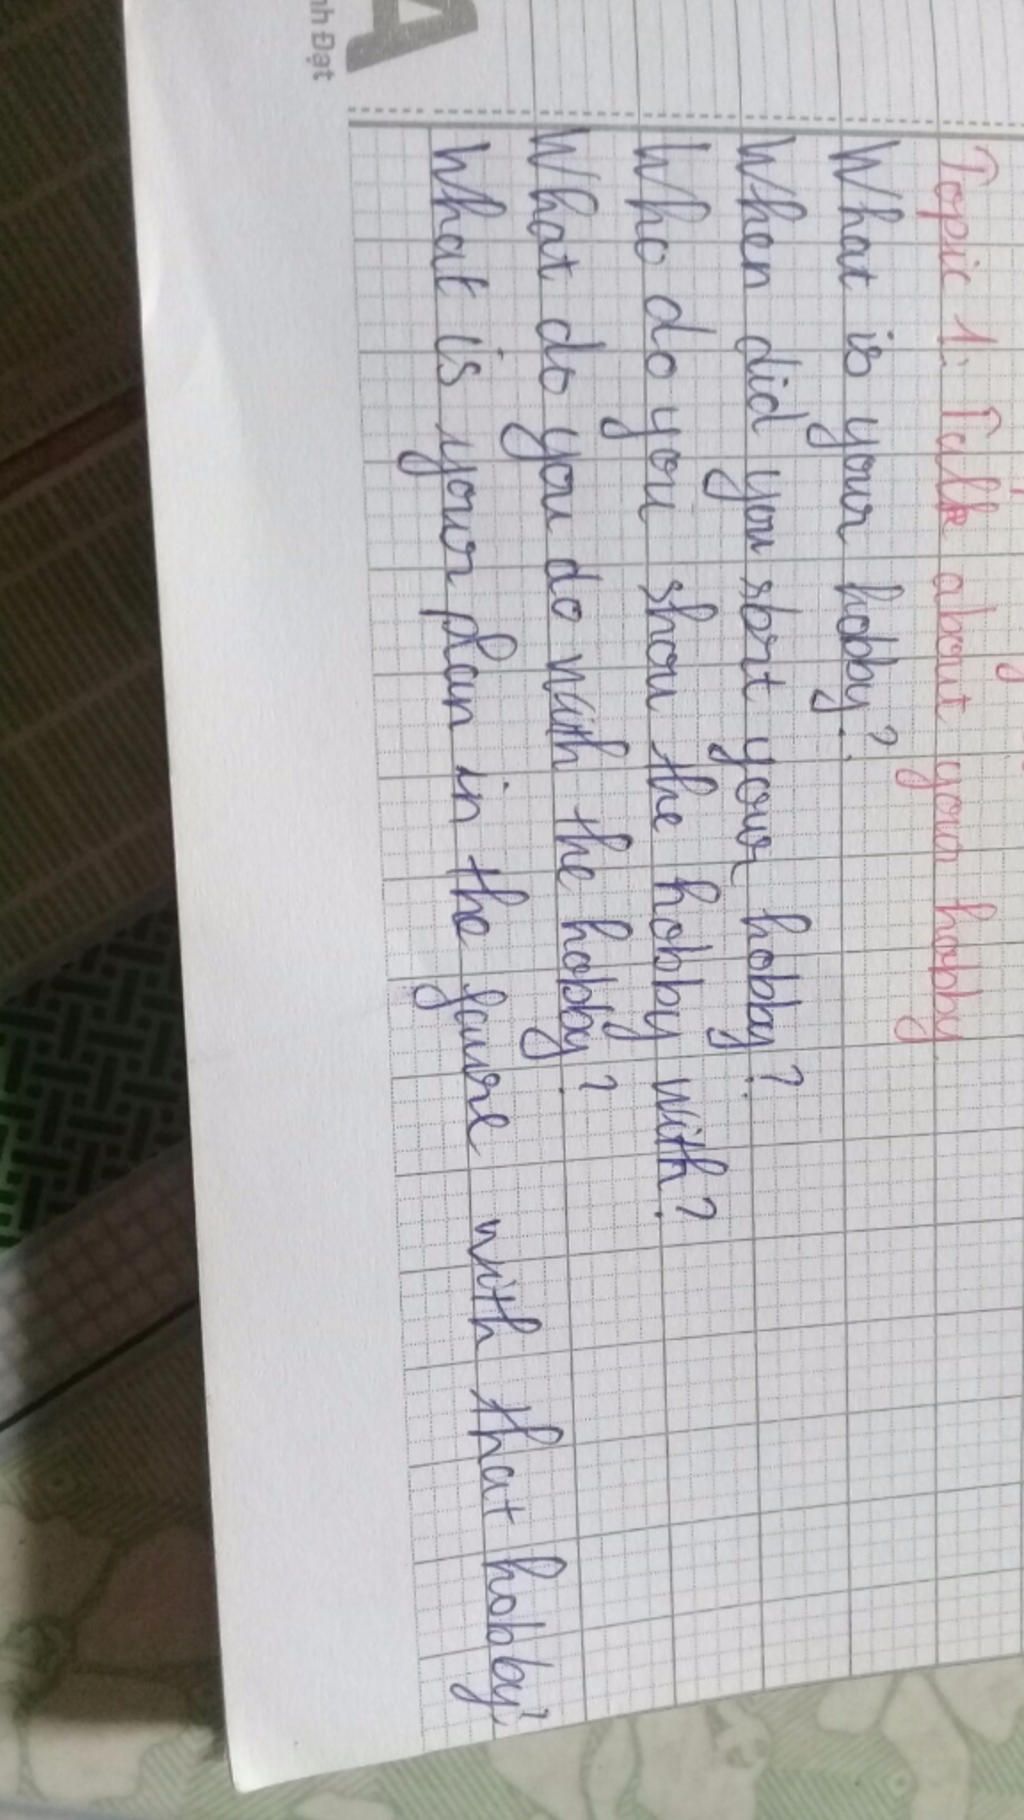 Topic 1: Talk about your hobby
What is your hobby?
When did you stort your hobby?
Who do you shou the hobby with?
What do you do with the hobby?
What is your plan in the fuure with that hobby?
A
nh Đạt